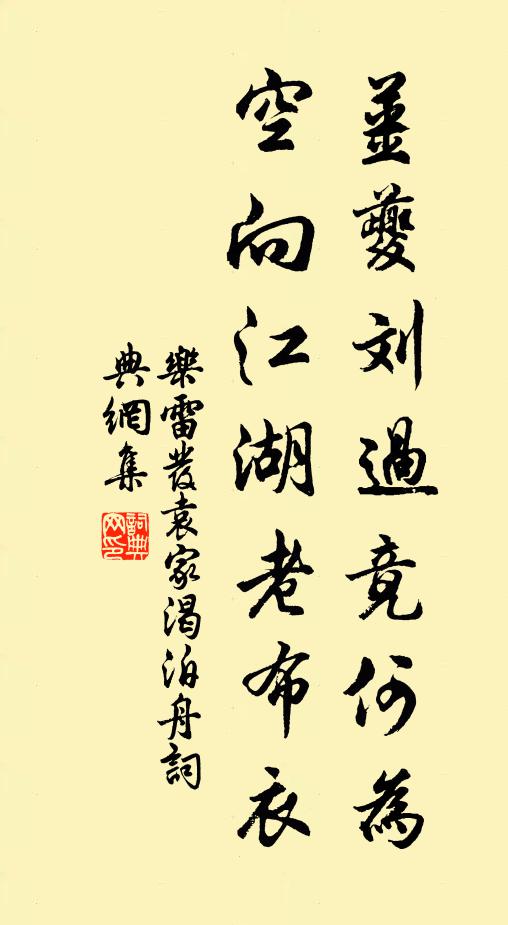 薑夔刘過竟何為
空向江湖老布衣
樂雷發袁家渴泊舟詞
典網集
詞典
网印